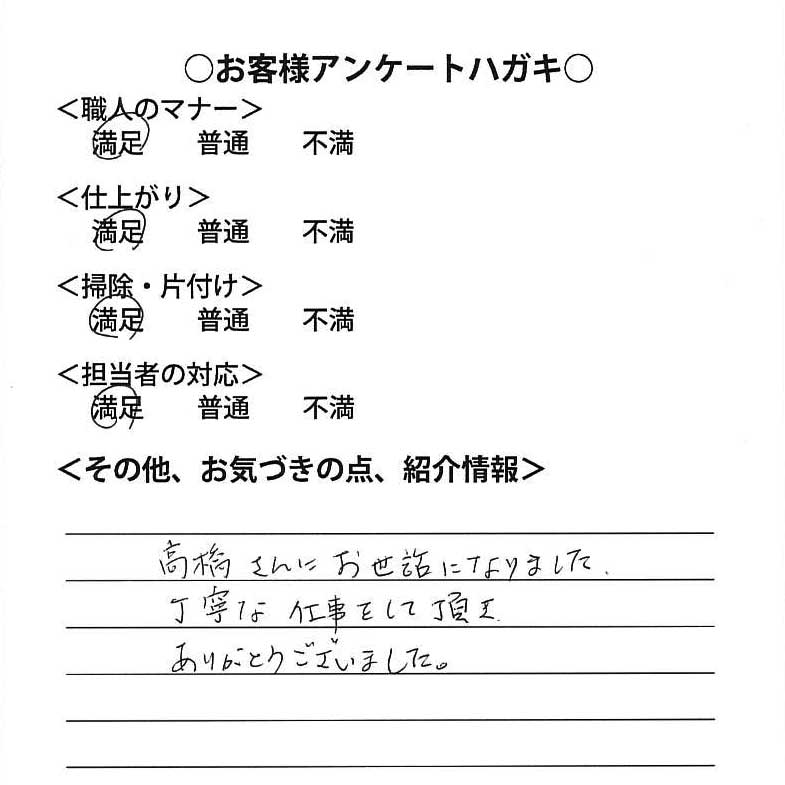 ○お客様アンケートハガキ○
＜職人のマナー＞
満足 普通 不満
＜仕上がり＞
満足 普通 不満
＜掃除・片付け＞
満足 普通 不満
＜担当者の対応＞
満足 普通 不満
＜その他、お気づきの点、紹介情報＞
高橋さんにお世話になりました.
丁寧な仕事をして頂き
ありがとうございました。